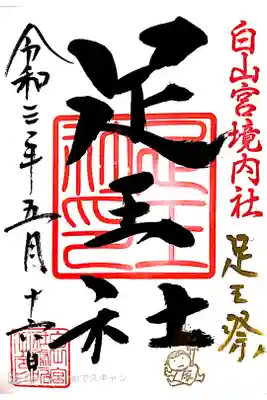 白山宮境内社
足王祭
足王社
令和三年五月十六日
でスキャン